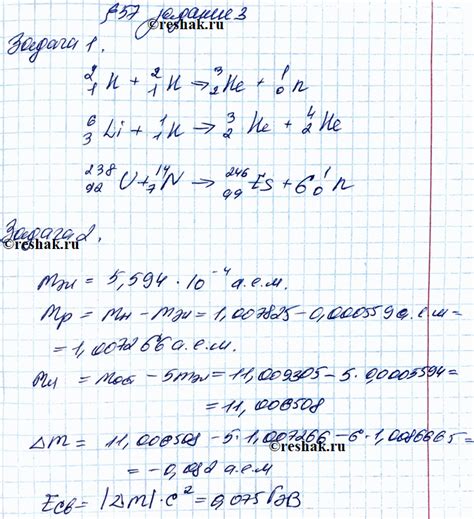 §57 задание 3
©reshak.ru
Задача 1.
²₁H + ²₁H → ³₂He + ¹₀n
⁶₃Li + ¹₁H → ³₂He + ⁴₂He
²³⁸₉₂U + ¹⁴₇N → ²⁴⁶₉₉Es + 6¹₀n
©reshak.ru
Задача 2.
mэл = 5,594 · 10⁻⁴ а.е.м.
mр = mн - mэл = 1,007825 - 0,000559 а.е.м =
= 1,007266 а.е.м.
mя = - 5mэл = 11,009305 - 5 · 0,0005594 =
= 11,006508
Δm = 11,006508 - 5 · 1,007266 - 6 · 1,0086665 =
©reshak.ru
= -0,082 а.е.м
Eсв = |Δm| · c² = 0,075 ГэВ